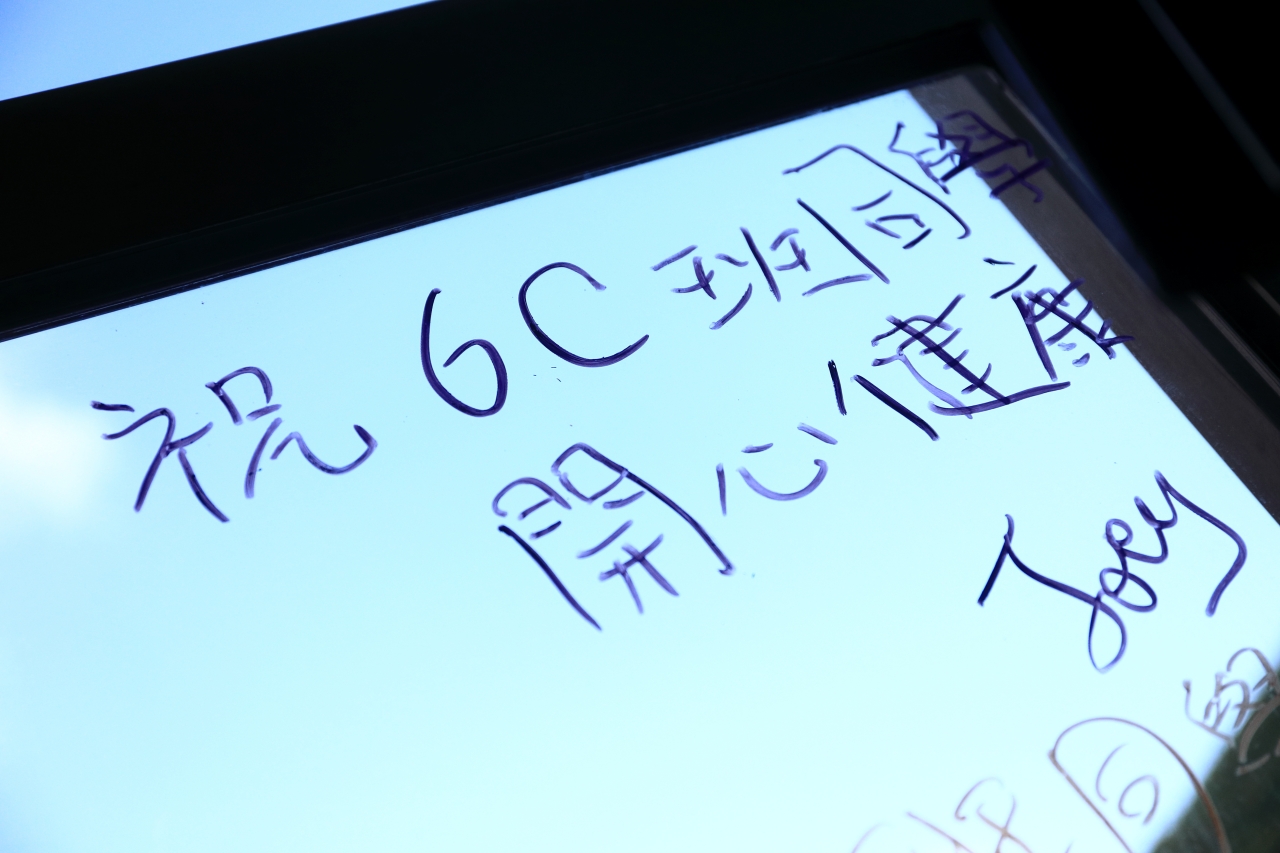 祝 6C班同學
開心健康
Joey
同學